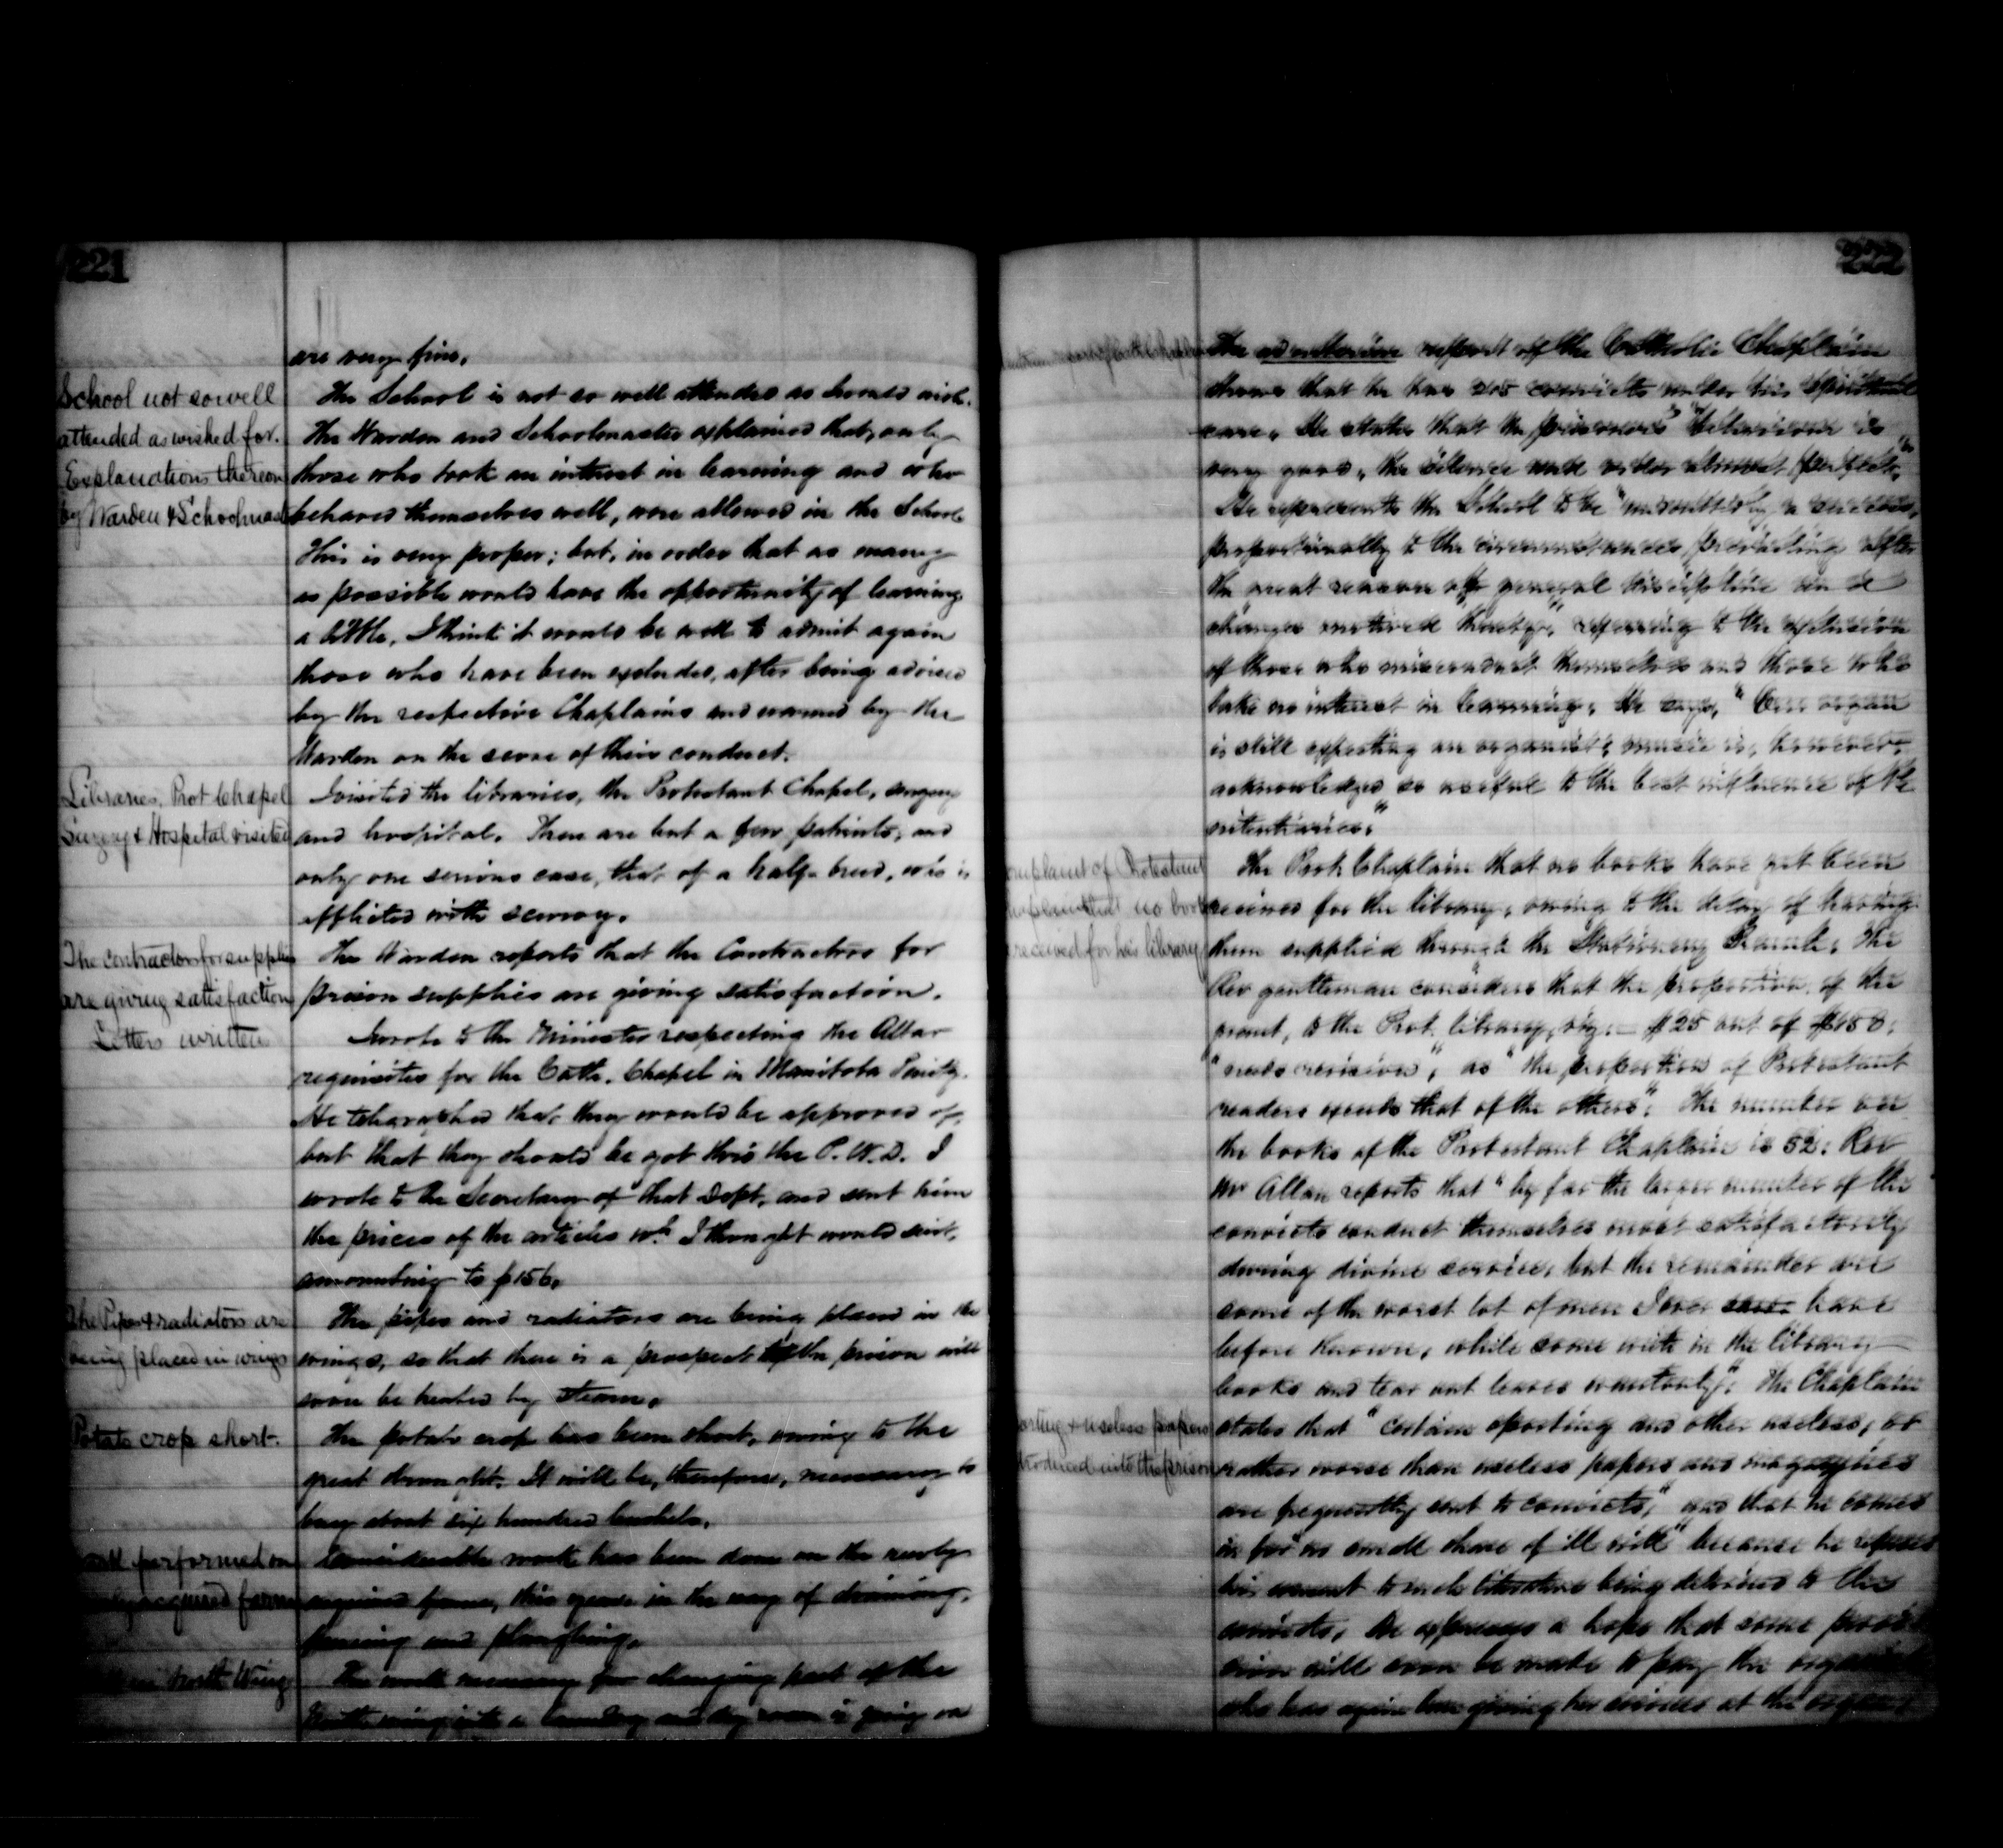 221
are very fine.
School not so well
attended as wished for.
Explanations thereon
by Warden & Schoolmas
The School is not so well attended as I would wish.
The Warden and Schoolmaster explained that, only
those who took an interest in learning and who
behaved themselves well, were allowed in the School
This is very proper; but, in order that as many
as possible would have the opportunity of learning
a little, I think it would be well to admit again
those who have been excluded, after being advised
by the respective Chaplains and warned by the
Warden on the score of their conduct.
Libraries, Prot Chapel
Surgery & Hospital visited
I visited the libraries, the Protestant Chapel, surgery
and hospital. There are but a few patients, and
only one serious case, that of a half-breed, who is
afflicted with scurvy.
The contractors for supplies
are giving satisfaction
The Warden reports that the Contractors for
prison supplies are giving satisfaction.
Letters written
I wrote to the Minister respecting the Altar
requisites for the Cath. Chapel in Manitoba Penity.
He telegraphed that they would be approved of,
but that they should be got thro' the P.W.D. I
wrote to the Secretary of that Dept. and sent him
the prices of the articles wh. I thought would suit,
amounting to $156.
The Pipes & radiators are
being placed in wings
The pipes and radiators are being placed in the
wings, so that there is a prospect the prison will
soon be heated by steam.
Potato crop short.
The potato crop has been short, owing to the
great drought. It will be, therefore, necessary to
buy about six hundred bushels.
performed on
acquired farm
Considerable work has been done on the newly
acquired farm, this year in the way of draining,
fencing and ploughing.
North Wing
The work necessary for changing part of the
North wing into a laundry and dry room is going on
222
The report of the Catholic Chaplain
shows that he has 205 convicts under his spiritual
care. He states that the prisoners' "behaviour is
very good, the silence and order almost perfect."
He represents the School to be "undoubtedly a success,
proportionally to the circumstances, predicting after
the great reason of general discipline
changes", referring to the exclusion
of those who misconduct themselves and those who
take no interest in learning. He says, "Our organ
is still expecting an organist; music is, however,
acknowledged so useful to the best influence of Pe
nitentiaries."
Complaint of Protestant
Chaplain that no books
received for his library
The Prot. Chaplain that no books have yet been
received for the library, owing to the delay of having
them supplied through the Stationery Branch. The
Rev gentleman considers that the proportion of the
grant, to the Prot. library, viz:— $25 out of
"needs revision", as "the proportion of Protestant
readers exceeds that of the others". The number on
the books of the Protestant Chaplain is 52. Rev
Mr Allan reports that "by far the larger number of the
convicts conduct themselves most satisfactorily
during divine service, but the remainder are
some of the worst lot of men I ever have
before known, while some write in the library
books and tear out leaves wantonly". The Chaplain
Sporting & useless papers
introduced into the prison
states that "certain sporting and other useless, or
rather worse than useless papers and magazines
are frequently sent to convicts," and that he comes
in for "no small share of ill will" because he refuses
his consent to such literature being delivered to the
convicts. He expresses a hope that some provi
sion will soon be made to pay the organist
who has again been giving her services at the organ